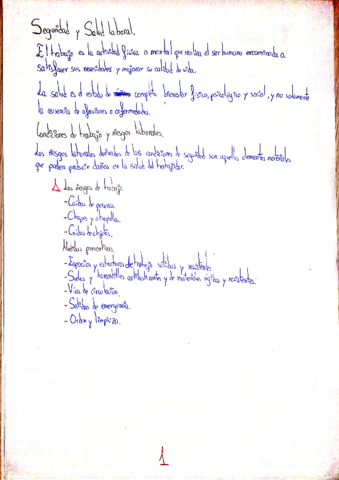 Seguridad y Salud laboral.
El trabajo es la actividad física o mental que realiza el ser humano encaminada a
satisfacer sus necesidades y mejorar su calidad de vida.
La salud es el estado de completo bienestar físico, psicológico y social, y no solamente
la ausencia de afecciones o enfermedades.
Condiciones de trabajo y riesgos laborales.
Los riesgos laborales derivados de las condiciones de seguridad son aquellos elementos materiales
que pueden producir daños en la salud del trabajador.
Los riesgos de trabajo
- Caídas de personas
- Choques y atropellos
- Caídas de objetos.
Medidas preventivas.
- Espacios y estructuras de trabajo sólidas y resistentes
- Suelos y antideslizantes y de materiales rígidos y resistentes.
- Vías de circulación
- Salidas de emergencia.
- Orden y limpieza.
1